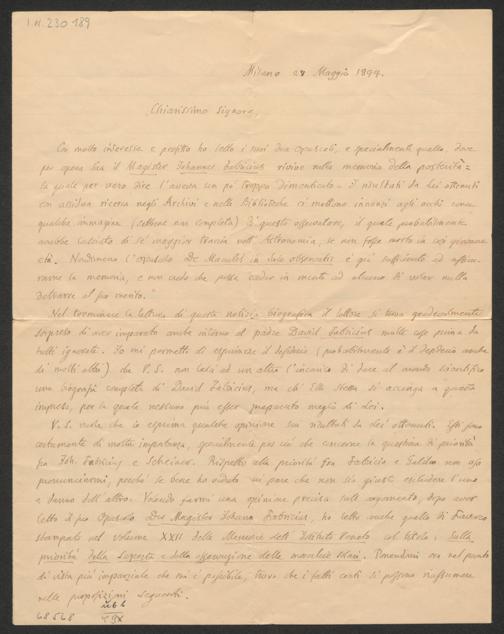 I.N. 230 189
Milano 28 Maggio 1899.
Chiarissimo Signore,
Con molto interesse e profitto ho letto i suoi due opuscoli, e specialmente quello, dove
per opera Sua il Magister Johannes Fabricius rivive nella memoria della posterità =
la quale per vero dire l'aveva un pò troppo dimenticato. I risultati da Lei ottenuti
con assidua ricerca negli Archivi e nelle Biblioteche ci mettono innanzi agli occhi come
qualche immagine (sebbene non completa) di questo osservatore, il quale probabilmente
avrebbe lasciato di sé maggior traccia nell'Astronomia, se non fosse morto in così giovane
età. Nondimeno l'opuscolo De Maculis in Sole observatis è già sufficiente ad
la memoria, e non credo che possa cader in mente ad alcuno di voler nulla
detrarre al suo merito.
Nel terminare la lettura di questa notizia biografica il lettore si trova gradevolmente
sorpreso di aver imparato anche intorno al padre David Fabricius molte cose prima da
tutti ignorate. Io mi permetto di esprimere il desiderio (probabilmente è il desiderio anche
di molti altri) che V.S. non lasci ad un altro l'incarico di dare al mondo scientifico
una biografia completa di David Fabricius, ma ch'Ella stessa si accinga a questa
impresa, per la quale nessuno può esser preparato meglio di Lei.
V.S. vuole che io esprima qualche opinione sui risultati da Lei ottenuti. Essi sono
certamente di molta importanza, specialmente per ciò che concerne la questione di priorità
fra Joh. Fabricius e Scheiner. Rispetto alla priorità fra Fabricio e Galileo non oso
pronunciarmi, perché se bene ho veduto mi pare che non sia giusto escludere l'uno
a danno dell'altro. Volendo farmi una opinione precisa sull'argomento, dopo aver
letto il suo Opuscolo Der Magister Johann Fabricius, ho letto anche quello di
stampato nel volume XXII delle Memorie dell'Istituto Veneto col titolo: Sulla
priorità della scoperta e della osservazione delle macchie solari. Ponendomi ora nel punto
di vista più imparziale che mi è possibile, trovo che i fatti certi si possono riassumere
nelle proposizioni seguenti.
68528